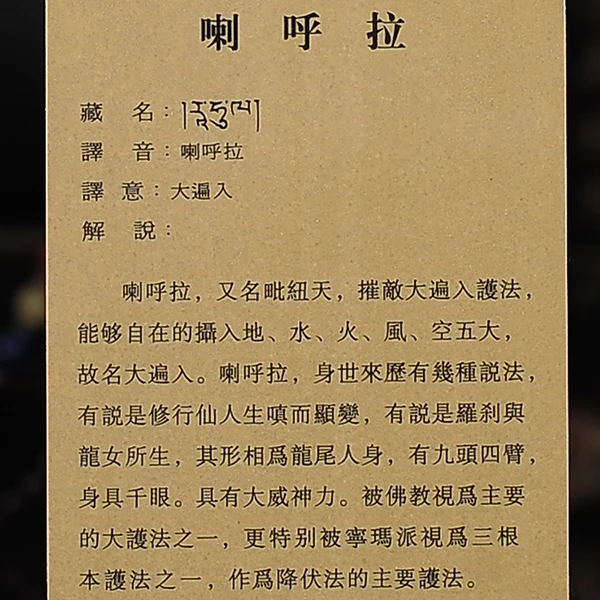 喇呼拉
藏 名：
譯 音：喇呼拉
譯 意：大遍入
解 說：
喇呼拉，又名毗紐天，摧敵大遍入護法，
能够自在的攝入地、水、火、風、空五大，
故名大遍入。喇呼拉，身世來歷有幾種説法，
有説是修行仙人生嗔而顯變，有説是羅刹與
龍女所生，其形相爲龍尾人身，有九頭四臂，
身具千眼。具有大威神力。被佛教視爲主要
的大護法之一，更特别被寧瑪派視爲三根
本護法之一，作爲降伏法的主要護法。